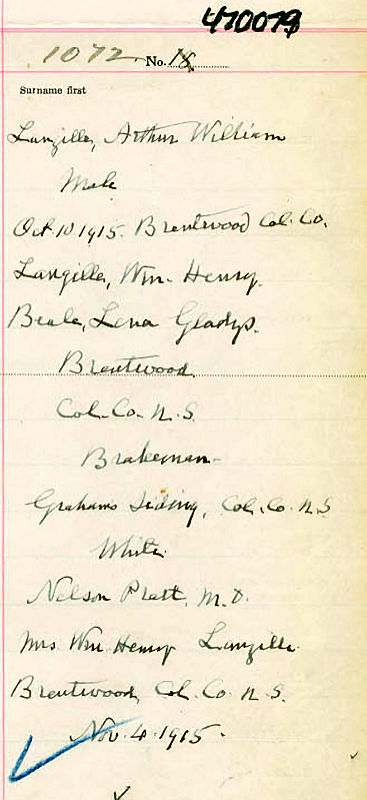 470079
1072 No. 18
Surname first
Langille, Arthur William
Male
Oct. 10 1915. Brentwood Col. Co.
Langille, Wm. Henry.
Beale, Lena Gladys.
Brentwood
Col. Co. N. S.
Brakeman
Grahams Siding, Col. Co. N. S
White
Nelson Pratt, M. D.
Mrs Wm Henry Langille
Brentwood, Col. Co. N. S.
Nov. 4. 1915.